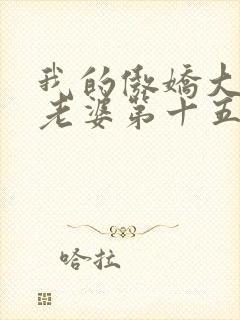 我的傲娇大
老婆第十五
哈拉